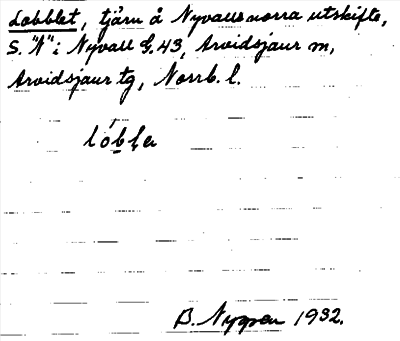 Lobblet, tjärn å Nyvalls norra utskifte,
S. "N": i Nyvall E.43, Arvidsjaur m,
Arvidsjaur tg, Norrb. l.
B. Nygren 1932.